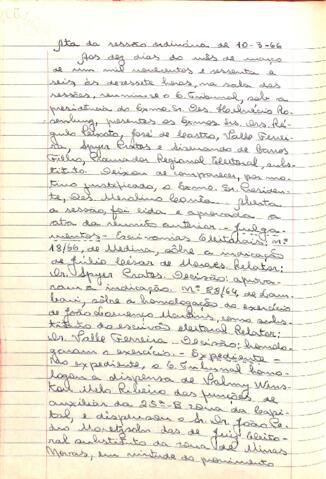 Ata da sessão ordinária de 10-3-66
Aos dez dias do mês de março
de um mil novecentos e sessenta e
seis, às dezessete horas, na sala das
sessões, reuniu-se o E. Tribunal, sob a
presidência do Exmo. Sr. Des.
presentes os Exmos. Srs. Drs.
José de Castro, Valle Ferrei-
ra, Spyer Prates e de Barros
Filho, Procurador Regional Eleitoral, subs-
tituto. Deixou de comparecer, por mo-
tivo justificado, o Exmo. Sr. Presiden-
te, Des. Aberta
a sessão, foi lida e aprovada a
ata da reunião anterior. - Julga-
mentos - Escrivanias Eleitorais: nº
18/66, de Medina, sôbre a indicação
de Júlio César de Moraes. Relator:
Dr. Spyer Prates. Decisão: aprova-
ram a indicação. Nº 28/64, de Lam-
bari, sôbre a homologação do exercício
de João Lourenço Martins, como subs-
tituto do escrivão eleitoral. Relator:
Dr. Valle Ferreira. Decisão: homolo-
garam o exercício. - Expediente -
No expediente, o E. Tribunal homo-
logou a dispensa de Wins-
ton Melo Ribeiro das funções de
auxiliar da 25ª-B zona da Capi-
tal, e dispensou o Sr. Dr. João Pe-
dro das de Juiz Eleito-
ral substituto da zona de Minas
Novas, em virtude do provimento